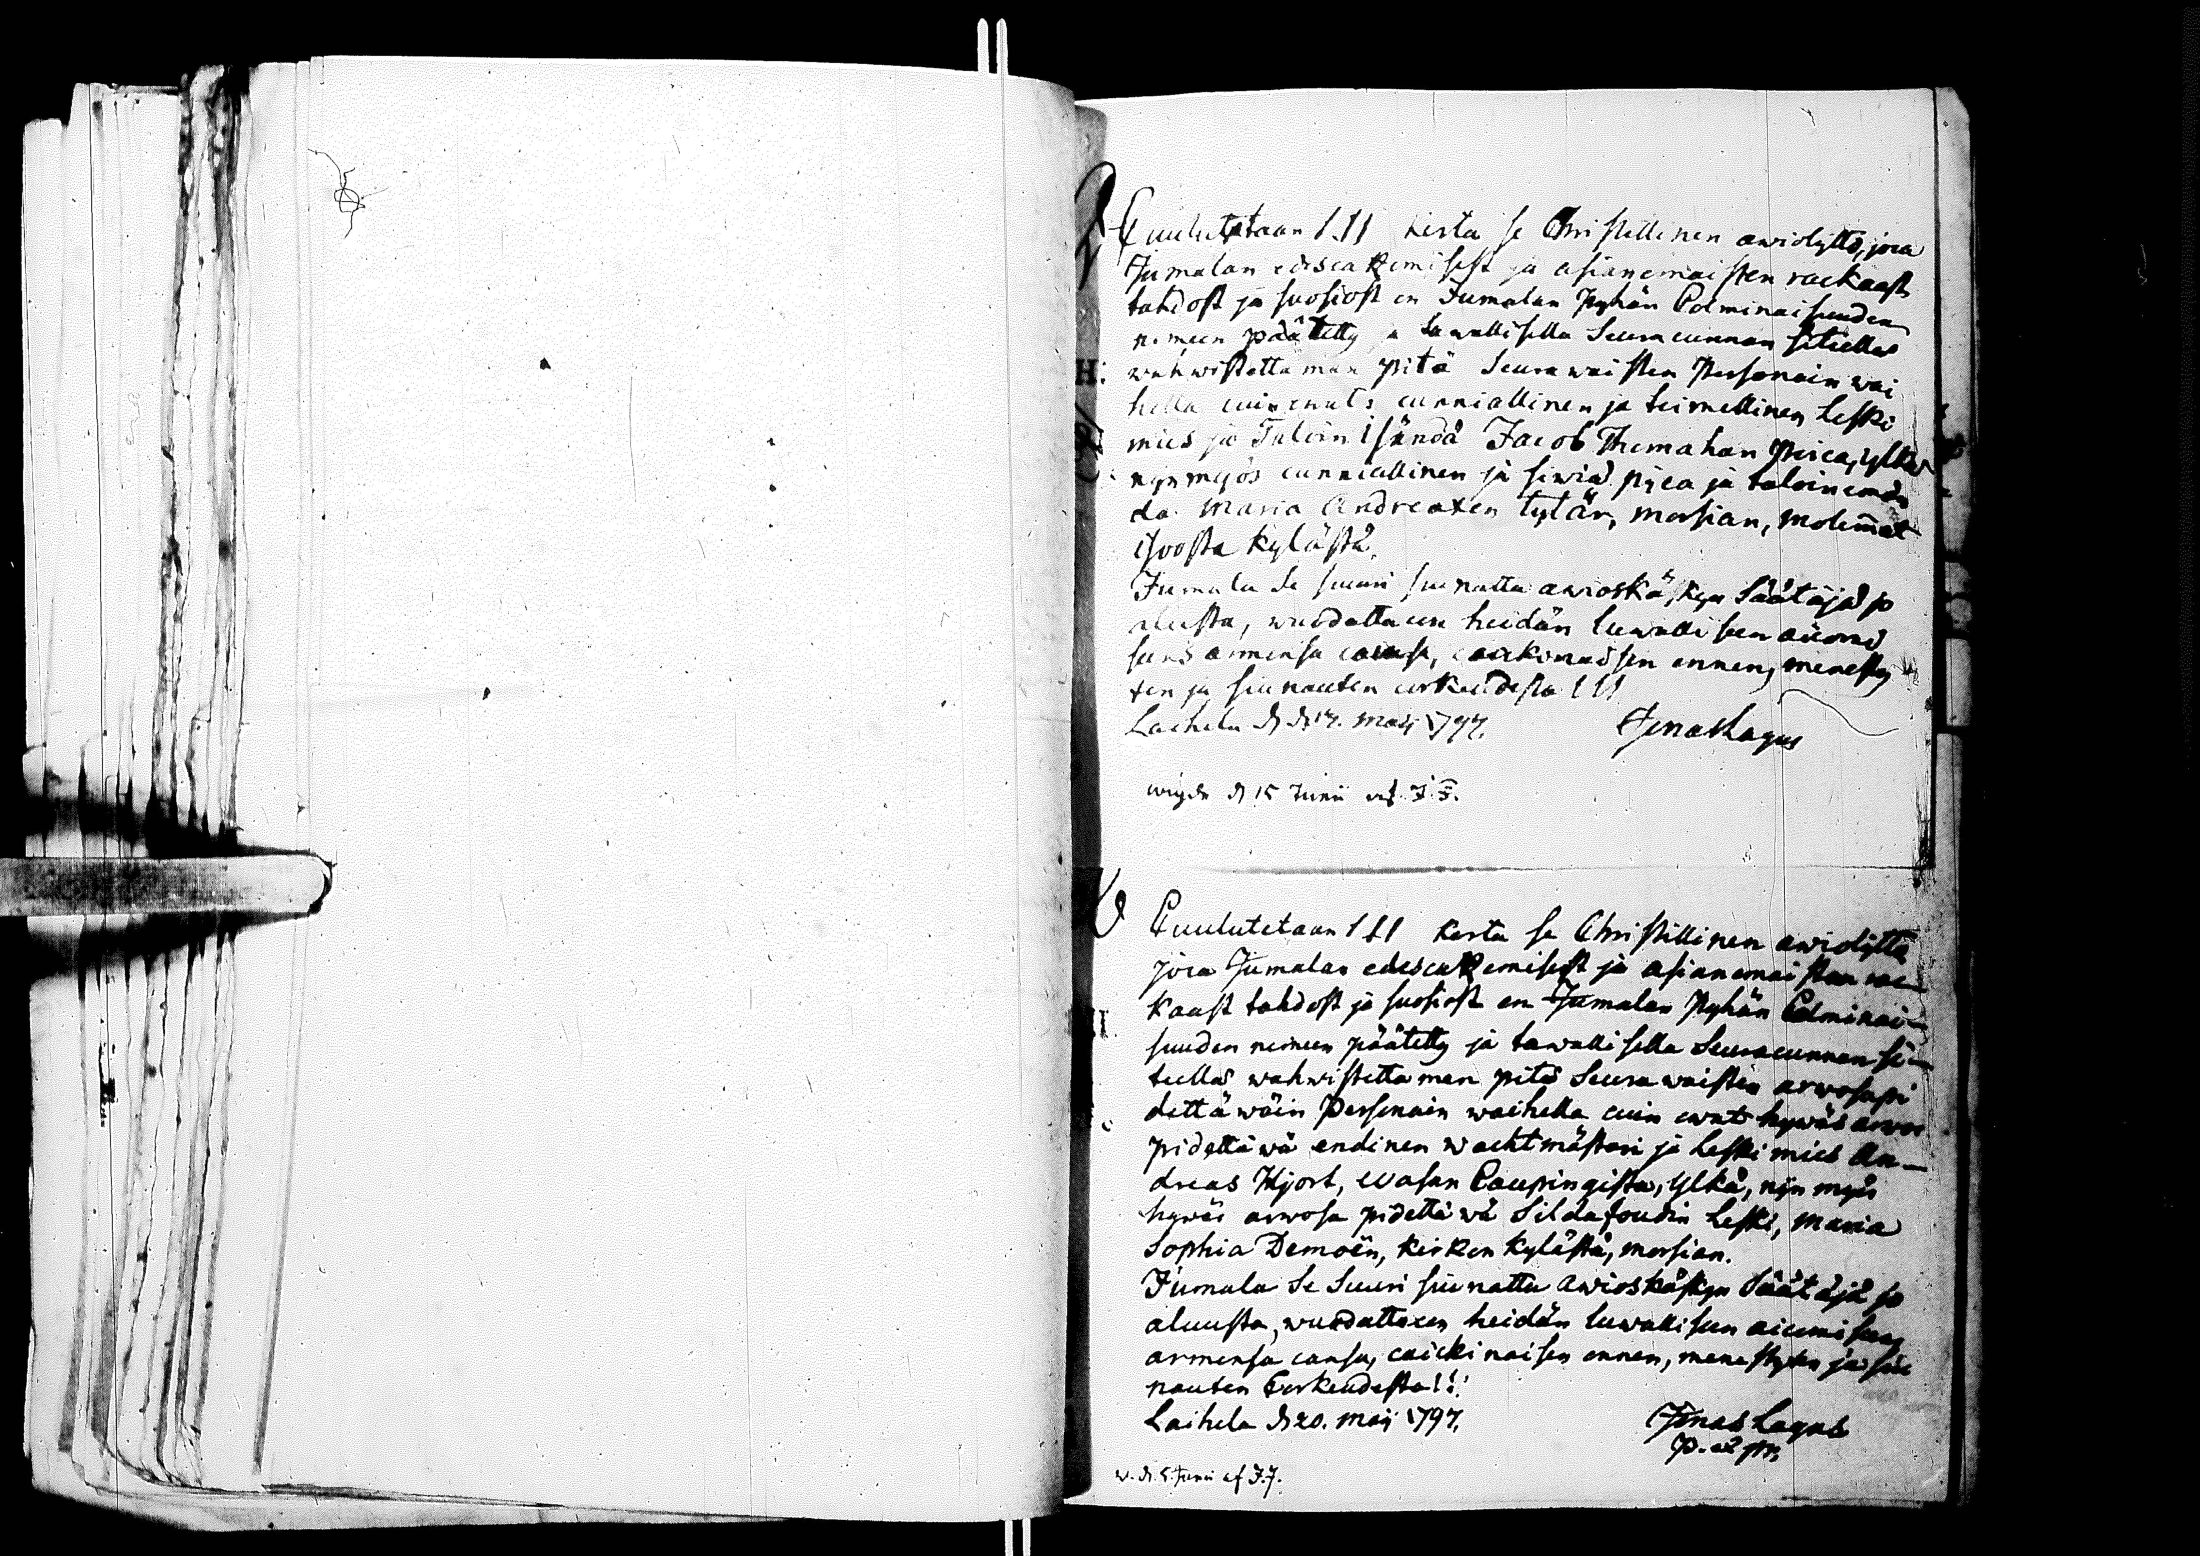 Cuulutetaan 1.11 kerta se Christillinen awiolijtto, joca
Jumalan edescazemisest ja asianomaisten rackaast
tahdost ja suosiost on Jumalan Pyhän Colminaisuuden
nimeen päätetty ja tawallisella Seuracunnan
wahwistettaman pitä Seurawaisten Personain wai
hella cuin owat: cunniallinen ja toimellinen Leski
mies ja Taloin Isändä Jacob Thomahan Poica, ylkä
nijn myös cunniallinen ja siwiä pijca ja taloin
da Maria Andreaxen tytär, morsian, molemat
Isosta kylästä.
Jumala se suuri siunattu awioskäskyn Säätäjä jo
alusta, wuodattacon heidän luwallisen aicomi
sens armonsa cansa, caickinaisen onnen, menesty
xen ja siunauxen corkeudesta!!!
Laihela d. 14. Maij 1797. Jonas Lagus
wigde d 15 Junii af J. J.
Cuulutetaan 111 kerta se Christillinen awiolijtto
joca Jumalan edescazemisest ja asianomaistan rac
kaast tahdost ja suosiost on Jumalan Pyhän Colminai-
suuden nimeen päätetty ja tawallisella Seuracunnan si-
teellä wahwistettaman pitä Seurawaisten arwosapi
dettäwäin Personain waihella cuin owat hywäs arwos
pidettäwä endinen wachtmästari ja Leski mies An-
dreas Hjort, Wasan Caupungista, ylkä, nijn myös
hywäs arwosa pidettäwä Sildafoudin Leski, Maria
Sophia Demoën, Kirkon kylästä, morsian.
Jumala se Suuri siunattu Awioskäskyn Säätäjä jo
alusta, wuodattacon heidän luwallisen aicomisens
armonsa cansa, caickinaisen onnen, menestyxen ja siu
nauxen Corkeudesta!!!
Laihela d. 20. Maij 1797. Jonas Lagus
w. d. 5. Junii af J. J.